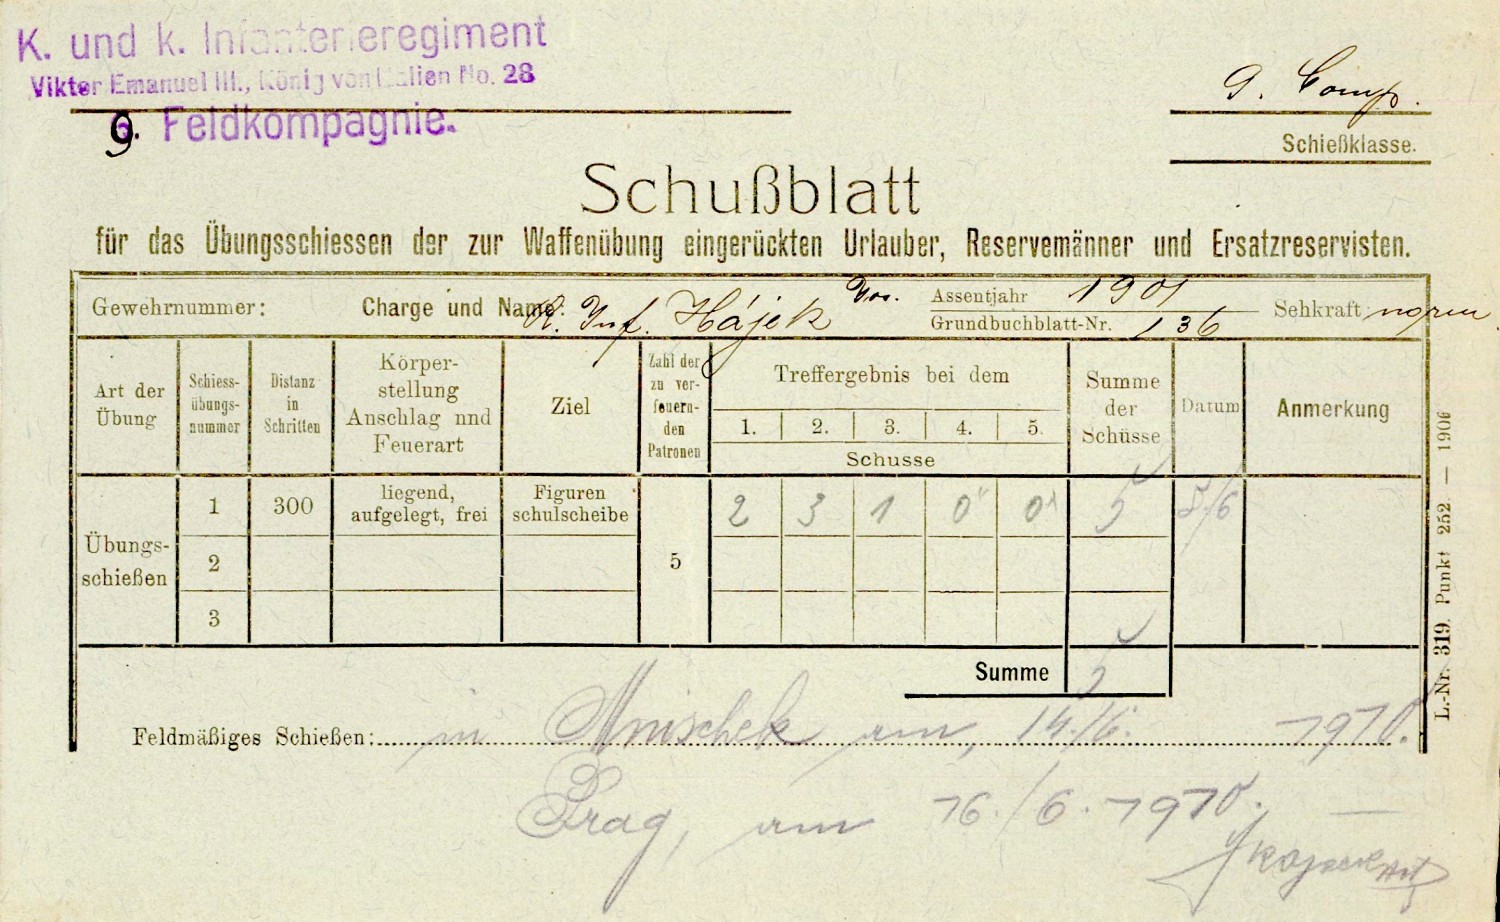 K. und k. Infanterieregiment
Viktor Emanuel III., König von Italien No. 28
9. Feldkompagnie.
9. Comp.
Schießklasse.
Schußblatt
für das Übungsschiessen der zur Waffenübung eingerückten Urlauber, Reservemänner und Ersatzreservisten.
Gewehrnummer: Charge und Name: R. Inf. Hájek Jos. Assentjahr 1901 Sehkraft
Grundbuchblatt-Nr. 136
Art der Übung
Schiess-übungs-nummer
Distanz in Schritten
Körper-stellung Anschlag nnd Feuerart
Ziel
Zahl der zu ver-feuern-den Patronen
Treffergebnis bei dem
1. 2. 3. 4. 5.
Schusse
Summe der Schüsse
Datum
Anmerkung
Übungs-schießen
1 300 liegend, aufgelegt, frei Figuren schulscheibe 5 2 3 1 0 0 5 8/6
2
3
Summe 5
Feldmäßiges Schießen: in Mnischek am, 14./6. 1910.
Prag, am 16./6. 1910.
L.-Nr. 319. Punkt 252. — 1906